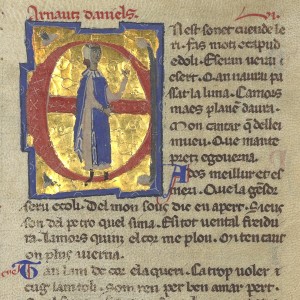 Arnautz daniels.
N est sonet cuende le
ri. fas motz e capud
e doli. E serun uerai
e sert. Qan naurai pas
sat la luna. Camors
mans plan e daura.
Mon cantar que de llei
mueu. Que mante
pretz e gouerna.
A des meillur et es
meri. Que la gēsor
seru e coli. Del mon so uos die en apert. Sieus
son del pe tro quel sima. E si tot uental freidu
ra. Lamors quim el cor me plou. On ten caut
on plus uuerna.
T an lam de cor e la queri. Catrop uoler
cug lam toli. Som ren per ben amar pert.